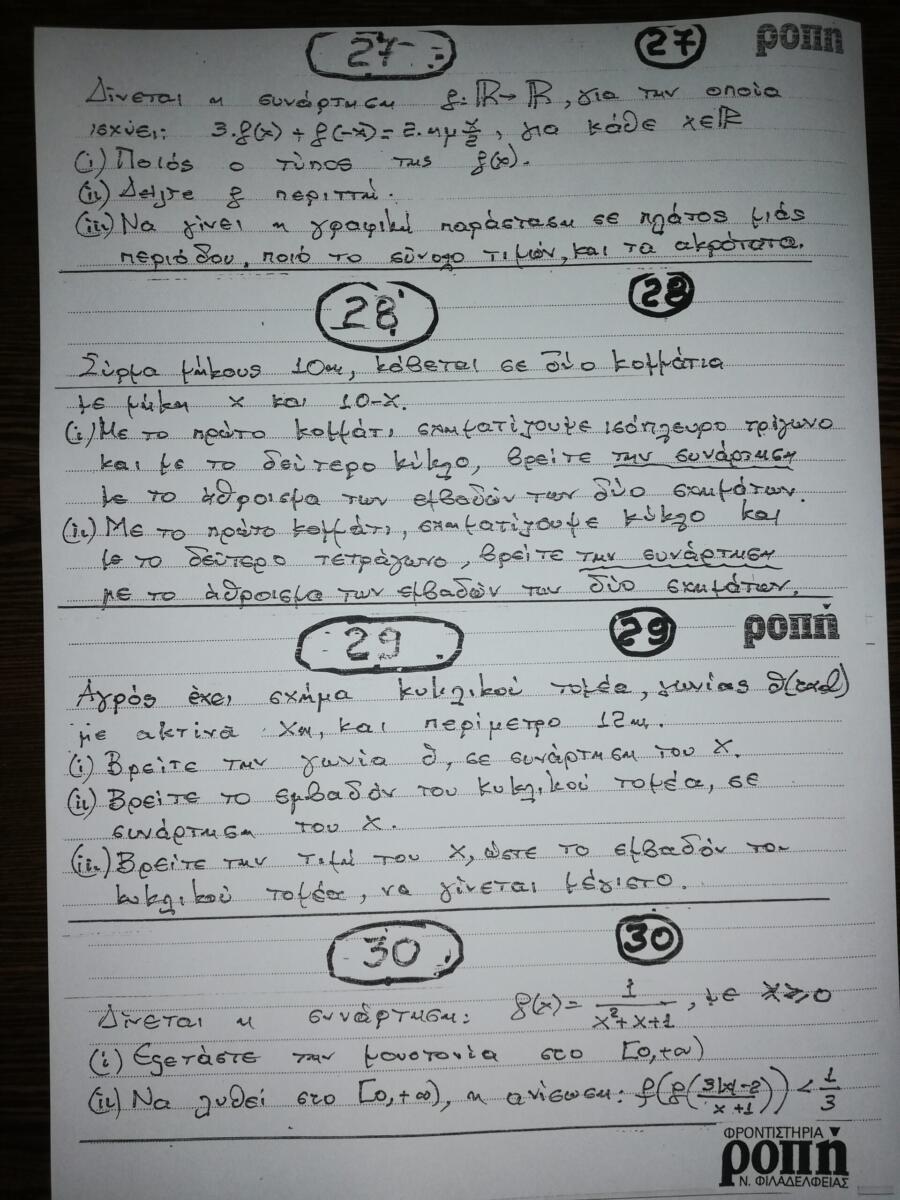 27 27 ροπή
Δίνεται η συνάρτηση f: ℝ→ℝ, για την οποία
ισχύει: 3·f(x) + f(-x) = 2·ημ x/2, για κάθε x∈ℝ
(i) Ποιός ο τύπος της f(x).
(ii) Δείξτε f περιττή.
(iii) Να γίνει η γραφική παράσταση σε πλάτος μιάς
περιόδου, ποιό το σύνολο τιμών, και τα ακρότατα.
28 28
Σύρμα μήκους 10m, κόβεται σε δύο κομμάτια
με μήκη x και 10-x.
(i) Με το πρώτο κομμάτι σχηματίζουμε ισόπλευρο τρίγωνο
και με το δεύτερο κύκλο, βρείτε την συνάρτηση
με το άθροισμα των εμβαδών των δύο σχημάτων.
(ii) Με το πρώτο κομμάτι, σχηματίζουμε κύκλο και
με το δεύτερο τετράγωνο, βρείτε την συνάρτηση
με το άθροισμα των εμβαδών των δύο σχημάτων.
29 29 ροπή
Αγρός έχει σχήμα κυκλικού τομέα, γωνίας θ(rad)
με ακτίνα xm, και περίμετρο 12m.
(i) Βρείτε την γωνία θ, σε συνάρτηση του x.
(ii) Βρείτε το εμβαδόν του κυκλικού τομέα, σε
συνάρτηση του x.
(iii) Βρείτε την τιμή του x, ώστε το εμβαδόν του
κυκλικού τομέα, να γίνεται μέγιστο.
30 30
Δίνεται η συνάρτηση: f(x) = 1/(x²+x+1), με x≥0
(i) Εξετάστε την μονοτονία στο [0,+∞)
(ii) Να λυθεί στο [0,+∞), η ανίσωση: f(f((3|x|-2)/(x+1))) < 1/3
ΦΡΟΝΤΙΣΤΗΡΙΑ
ροπή
Ν. ΦΙΛΑΔΕΛΦΕΙΑΣ